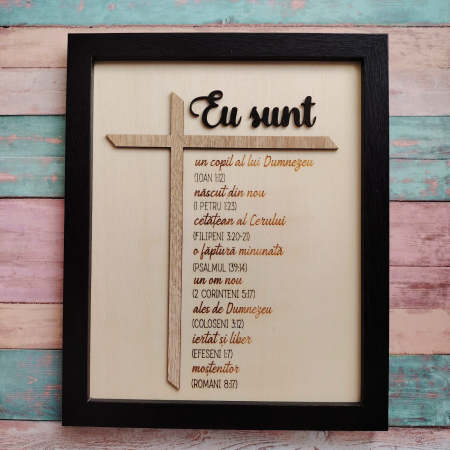 Eu sunt
un copil al lui Dumnezeu
(IOAN 1:12)
născut din nou
(1 PETRU 1:23)
cetățean al Cerului
(FILIPENI 3:20-21)
o făptură minunată
(PSALMUL 139:14)
un om nou
(2 CORINTENI 5:17)
ales de Dumnezeu
(COLOSENI 3:12)
iertat și liber
(EFESENI 1:7)
moștenitor
(ROMANI 8:17)